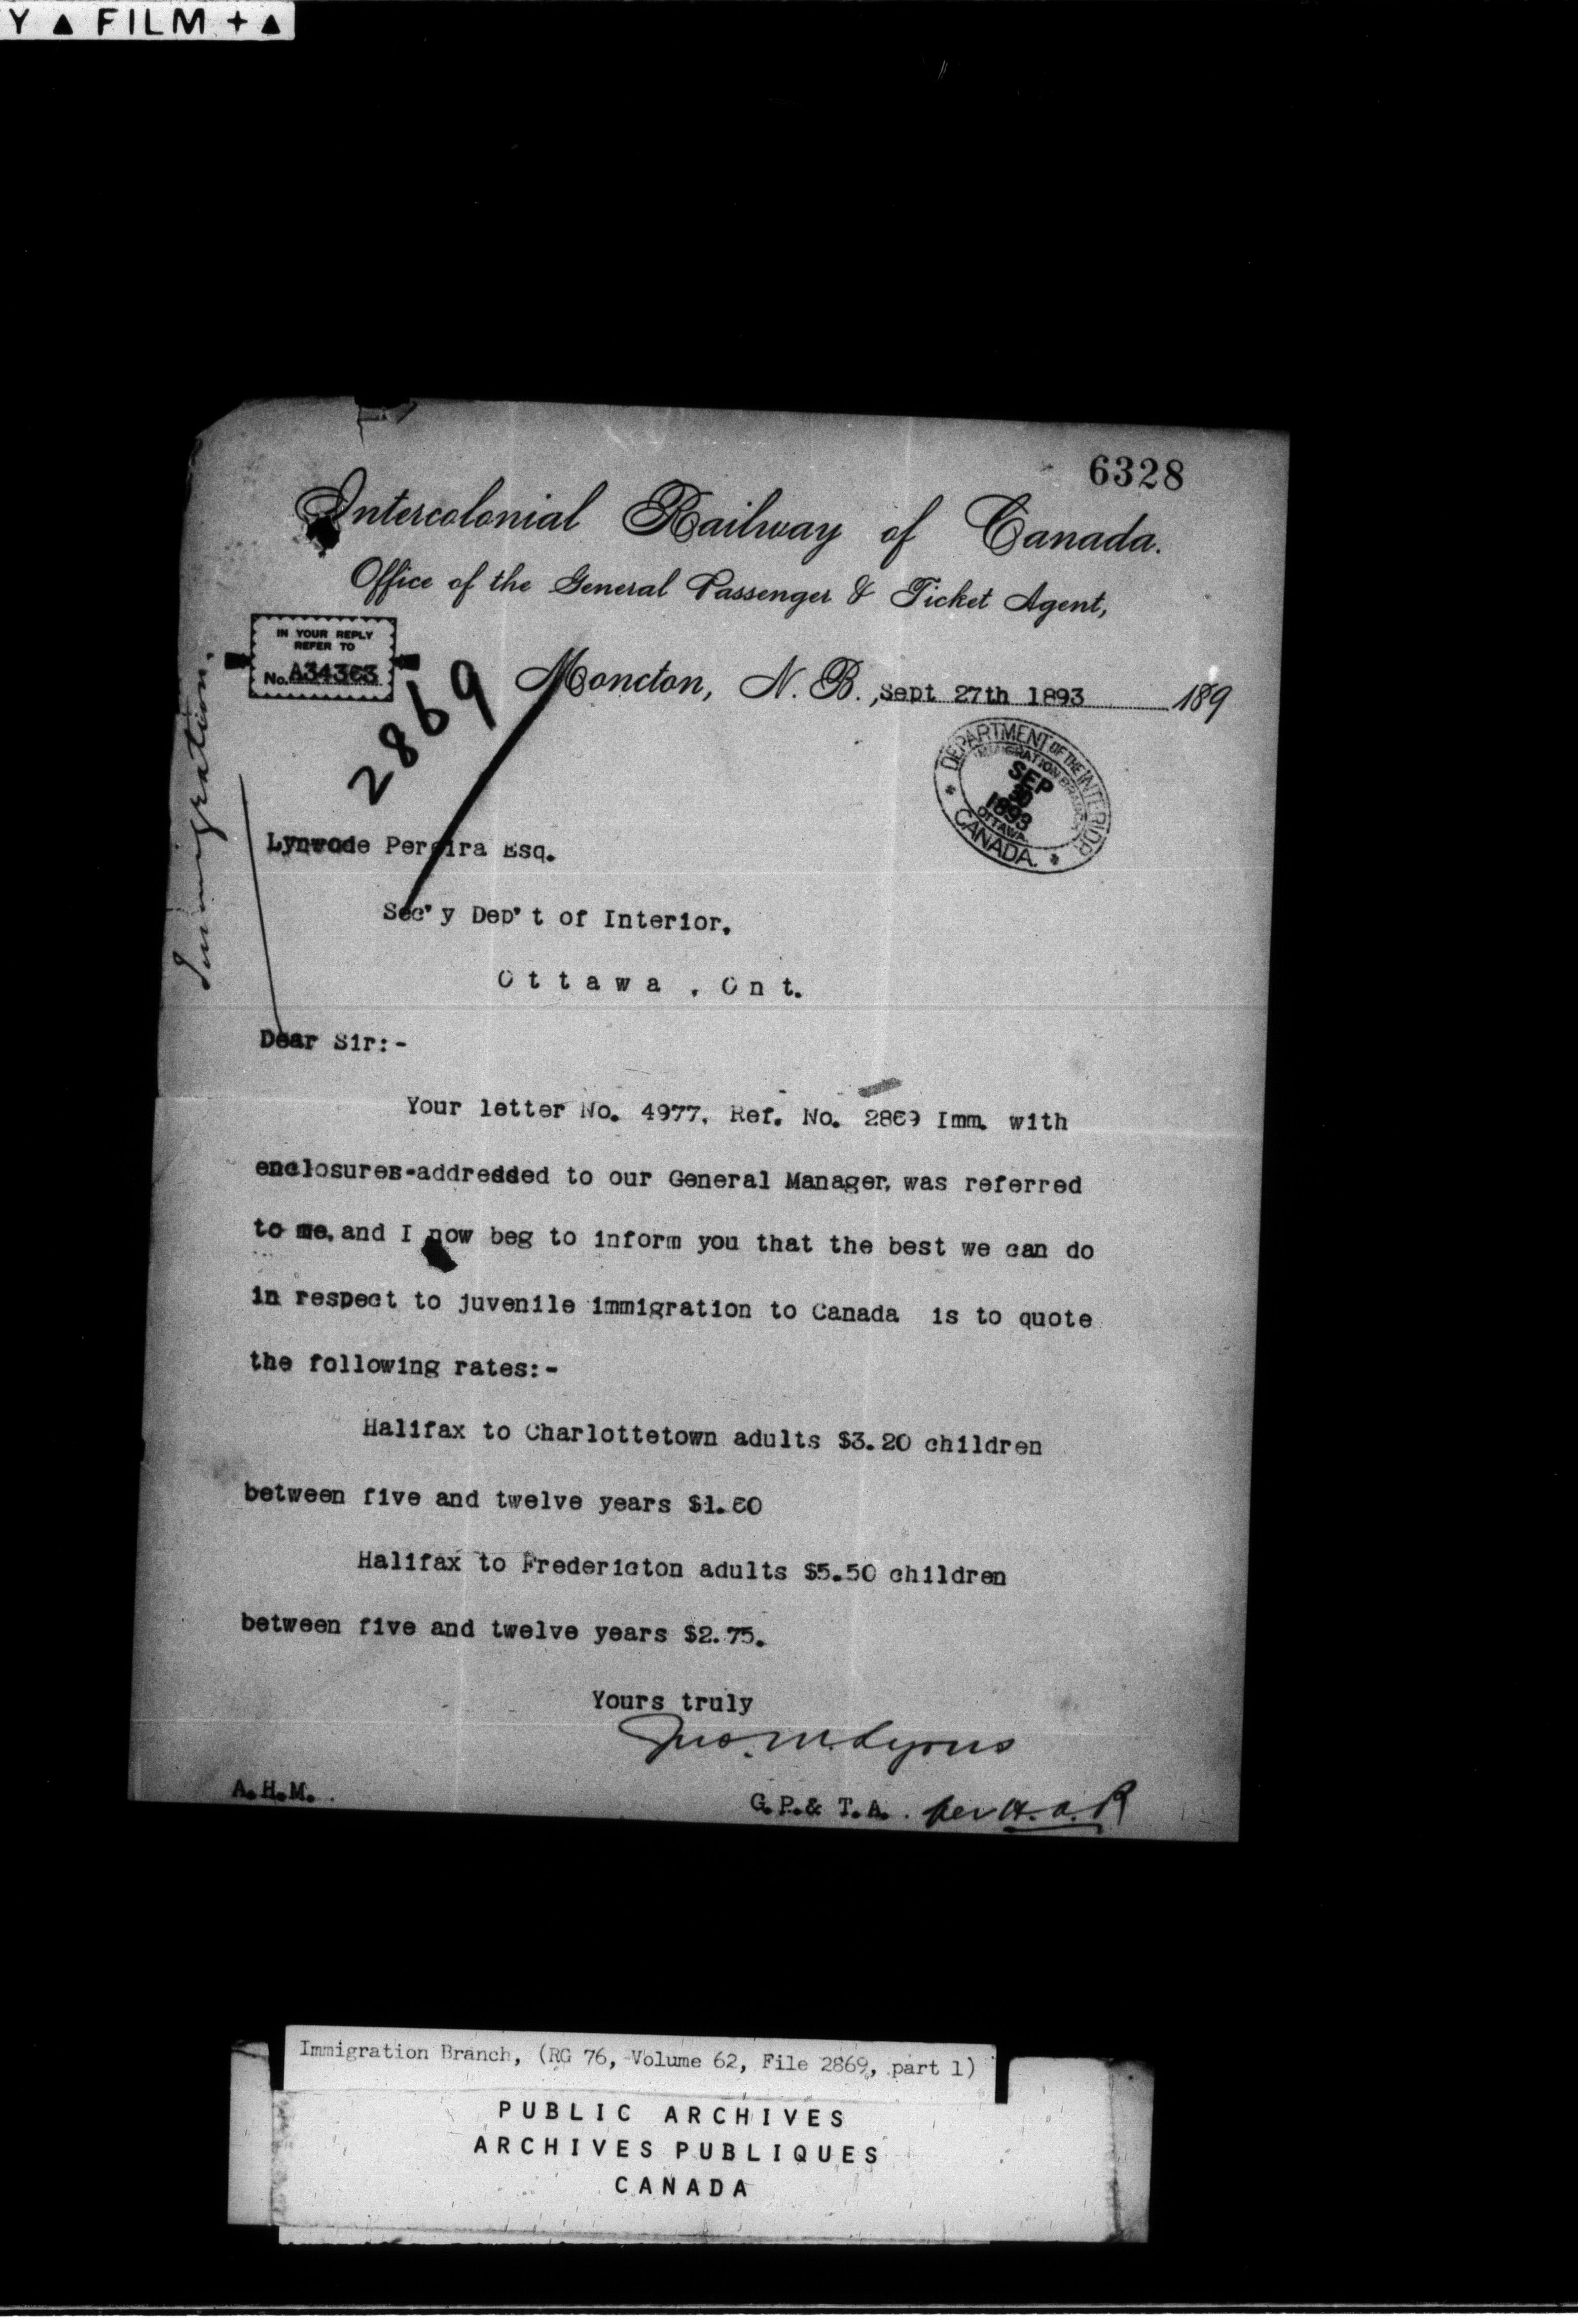 Y ▲ FILM + ▲
6328
Intercolonial Railway of Canada.
Office of the General Passenger & Ticket Agent,
IN YOUR REPLY
REFER TO
No. A34363
2869
Moncton, N. B., Sept 27th 1893 189
DEPARTMENT OF THE INTERIOR
IMMIGRATION BRANCH
SEP
30
1893
OTTAWA
CANADA.
Immigration.
Lynwode Pereira Esq.
Sec'y Dep't of Interior.
Ottawa, Ont.
Dear Sir:-
Your letter No. 4977, Ref. No. 2869 Imm. with
enclosures-addredded to our General Manager, was referred
to me, and I now beg to inform you that the best we can do
in respect to juvenile immigration to Canada is to quote
the following rates:-
Halifax to Charlottetown adults $3.20 children
between five and twelve years $1.60
Halifax to Fredericton adults $5.50 children
between five and twelve years $2.75.
Yours truly
Jno. M. Lyons
A.H.M.
G.P.& T.A. per H.A.R
Immigration Branch, (RG 76, Volume 62, File 2869, part 1)
PUBLIC ARCHIVES
ARCHIVES PUBLIQUES
CANADA